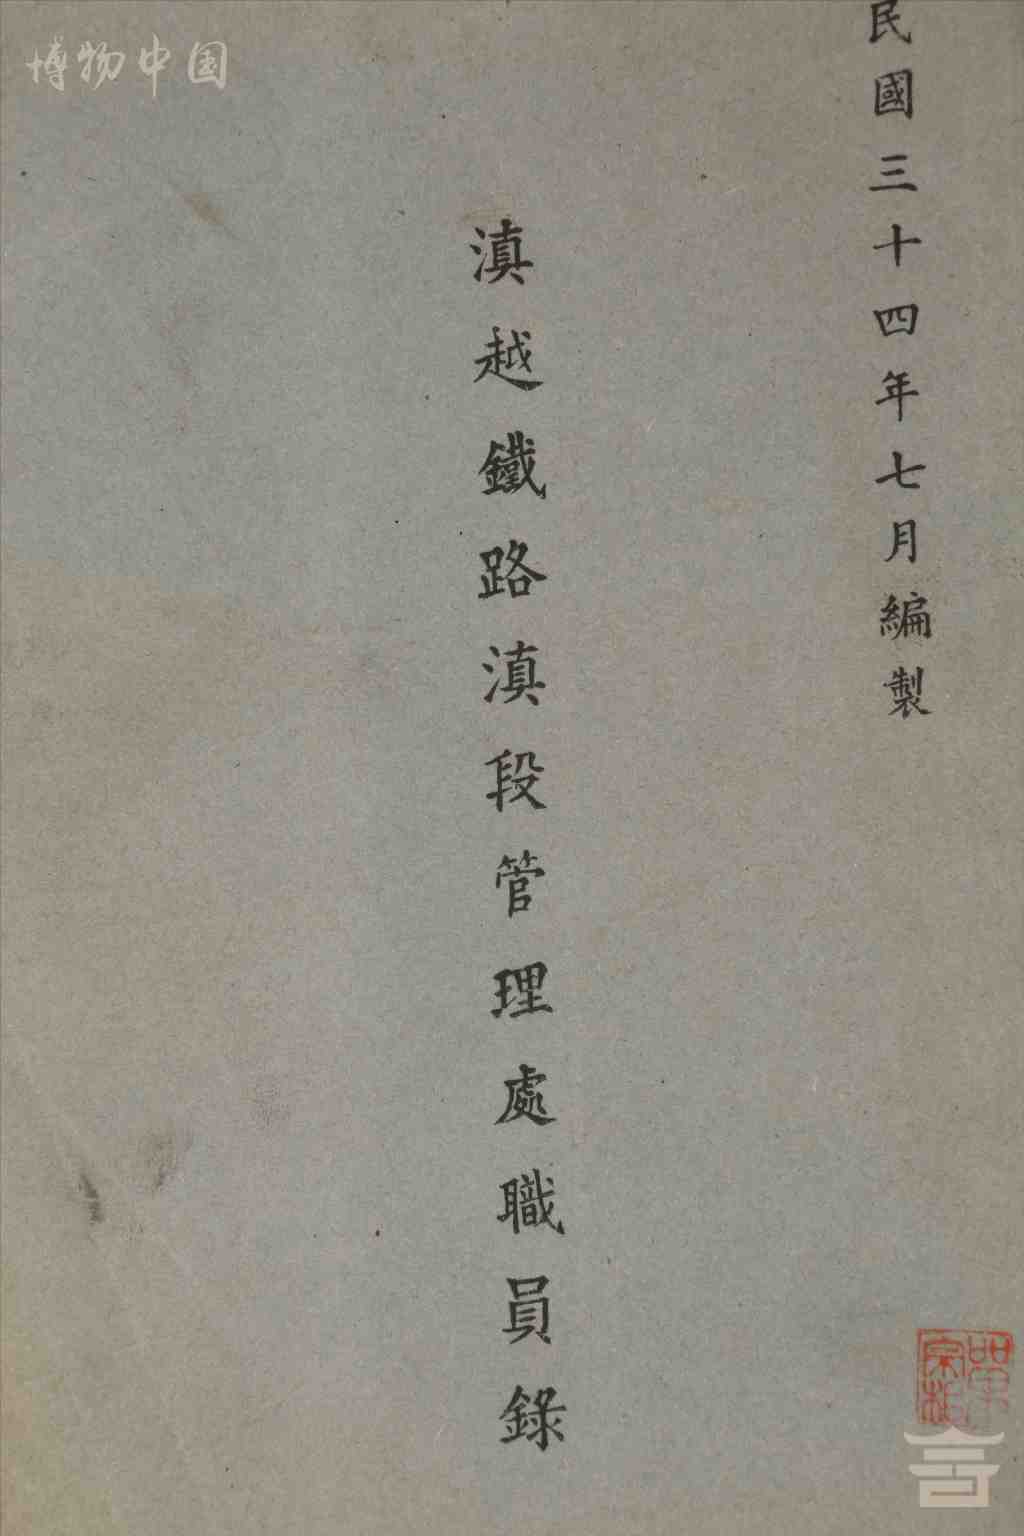 民國三十四年七月編製
滇越鐵路滇段管理處職員錄
博物中国